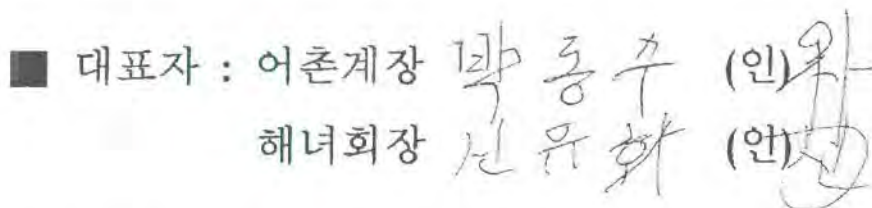 ■ 대표자 : 어촌계장 박동수 (인)
해녀회장 신유화 (인)